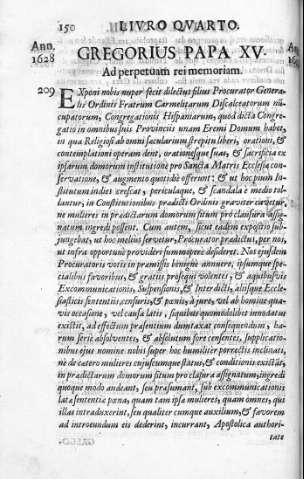 150 LIVRO QVARTO.
Ann. 1628
GREGORIUS PAPA XV.
Ad perpetuam rei memoriam.
209 EXponi nobis nuper fecit dilectus filius Procurator Genera-
lis Ordinis Fratrum Carmelitarum Discalceatorum nũ-
cupatorum, Congregationis Hispaniarum, quod dicta Congre-
gatio in omnibus suis Provincijs unam Eremi Domum habet,
in qua Religiosi ab omni sæcularium strepitu liberi, orationi, &
contemplationi operam dent, orationesque suas, & sacrificia ex
ipsarum domorum institutione pro Sancta Matris Ecclesiæ con-
servatione, & augmento quotidie offerunt; & ut hoc pium In-
stitutum indies crescat, periculaque, & scandala è medio tol-
lantur, in Constitutionibus prædicti Ordinis graviter cavetur,
ne mulieres in prædictarum domorum situm pro clausura assig-
natum ingredi possent. Cum autem, sicut eadem expositio sub-
jungebat, ut hoc melius servetur, Procurator prædictus, per nos,
ut infra opportune provideri summopere desideret. Nos ejusdem
Procuratoris votis in præmissis benigne annuere, ipsumque spe-
cialibus favoribus, & gratijs prosequi volentes, & a quibusvis
Excommunicationis, Suspensionis, & Interdicti, alijsque Eccle-
siasticis sententijs, censuris, & pœnis, à jure, vel ab homine qua-
vis occasione, vel causa latis, siquibus quomodolibet innodatus
existit, ad effectum præsentium dumtaxat consequendum, ha-
rum serie absolventes, & absolutum fore censentes, supplicatio-
nibus ejus nomine nobis super hoc humiliter porrectis inclinati,
ne de cætero mulieres cujuscumque status, & conditionis existãt,
in prædictarum domorum situm pro clausura assignatum, ingredi
quoque modo audeant, seu præsumant, sub excommunicationis
latæ sententiæ pœna, quam tam ipsæ mulieres, quam omnes, qui
illas introduxerint, seu qualiter cumque auxilium, & favorem
ad introeundum eis dederint, incurrant, Apostolica authori-
tate